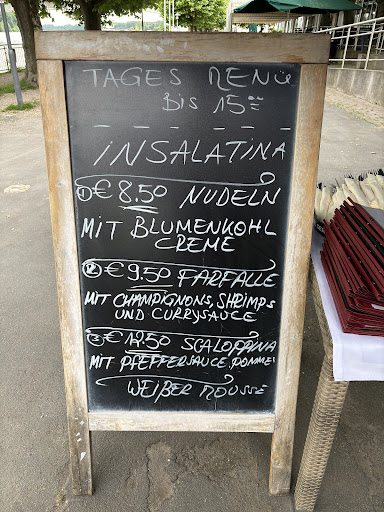 TAGES MENÜ
BIS 15⁰⁰
INSALATINA
① € 8.50 NUDELN
MIT BLUMENKOHL
CREME
② € 9.50 FARFALLE
MIT CHAMPIGNONS, SHRIMPS
UND CURRYSAUCE
③ € 12.50 SCALOPPINA
MIT PFEFFERSAUCE, POMMES
WEIßER MOUSSE